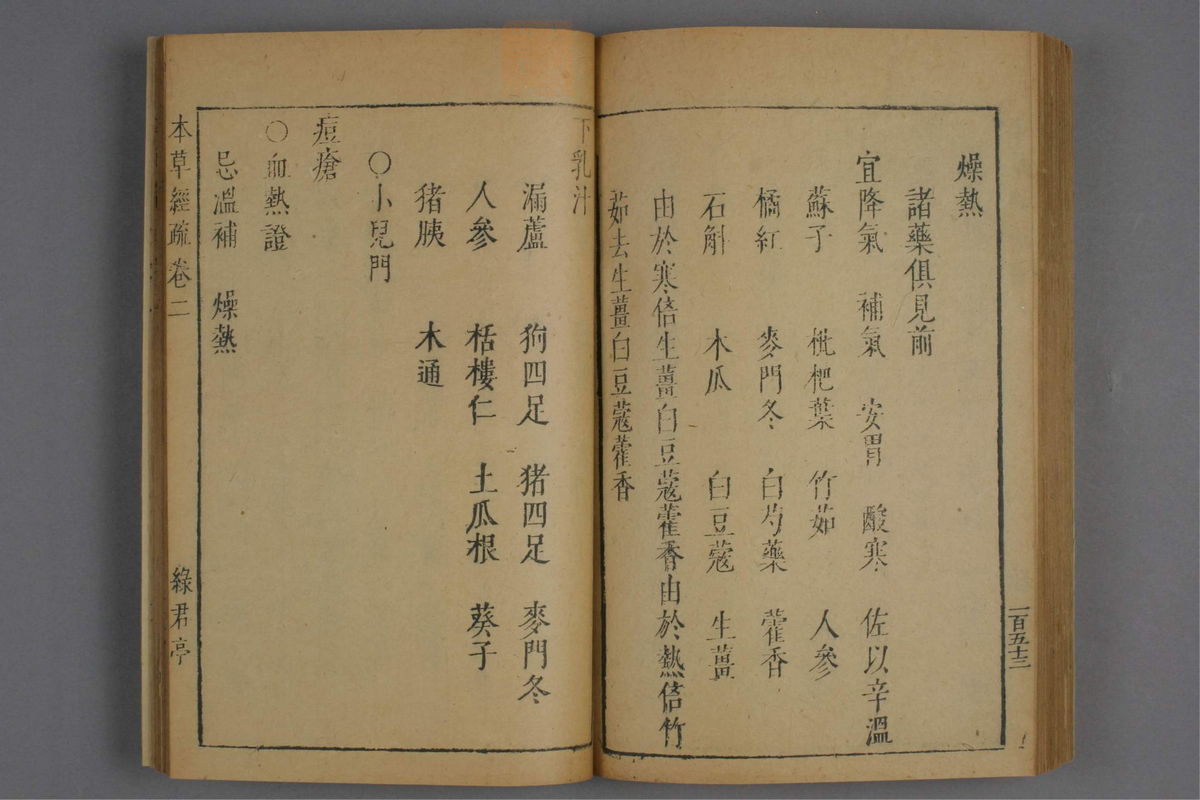 燥熱
諸藥俱見前
宜降氣 補氣 安胃 酸寒 佐以辛溫
蘇子 枇杷葉 竹茹 人參
橘紅 麥門冬 白芍藥 藿香
石斛 木瓜 白豆蔻 生薑
由於寒倍生薑白豆蔻藿香由於熱倍竹
茹去生薑白豆蔻藿香
一百五十三
下乳汁
漏蘆 狗四足 猪四足 麥門冬
人參 栝樓仁 土瓜根 葵子
猪胰 木通
○小兒門
痘瘡
○血熱證
忌溫補 燥熱
本草經疏 卷二 綠君亭